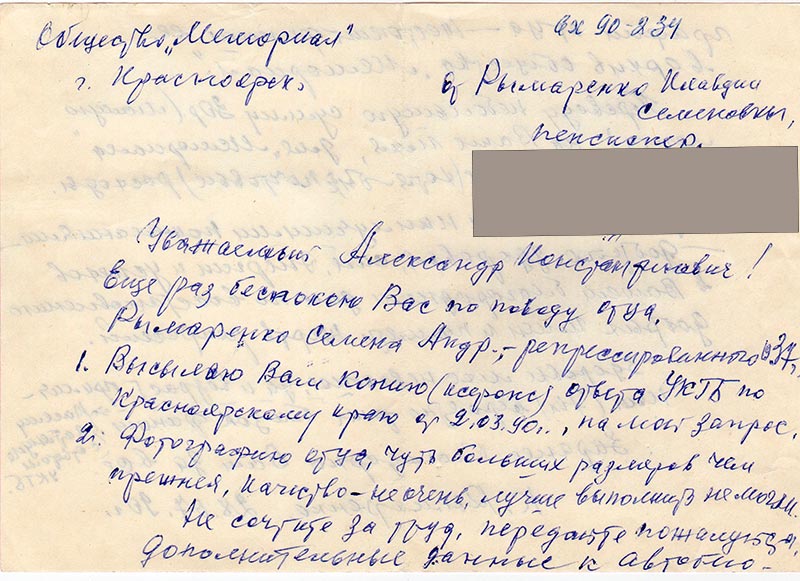 Вх 90-234
Общество „Мемориал"
г. Красноярск,
от Рымаренко Клавдии
Семеновны,
пенсионер.
Уважаемый Александр Константинович!
Еще раз беспокою Вас по поводу отца,
Рымаренко Семена Андр., – репрессированного 1937г,
1. Высылаю Вам копию (ксерокс) ответа УКГБ по
Красноярскому краю от 2.03.90г., на мой запрос.
2. Фотографию отца, чуть больших размеров чем
прежняя, качество – не очень, лучше выполнить не могли.
Не сочтите за труд, передайте пожалуйста,
дополнительные данные к автобио-